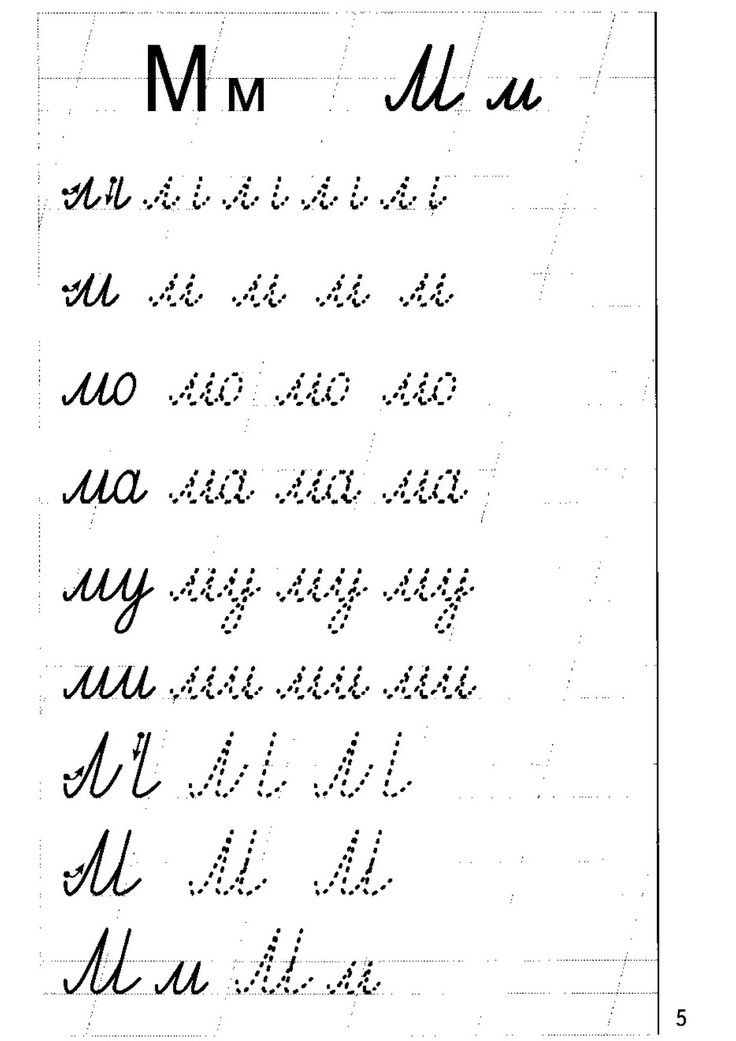 М м М м
м м м м м
мо мо мо мо
ма ма ма ма
му му му му
ми ми ми ми
М М М
М м М м
5